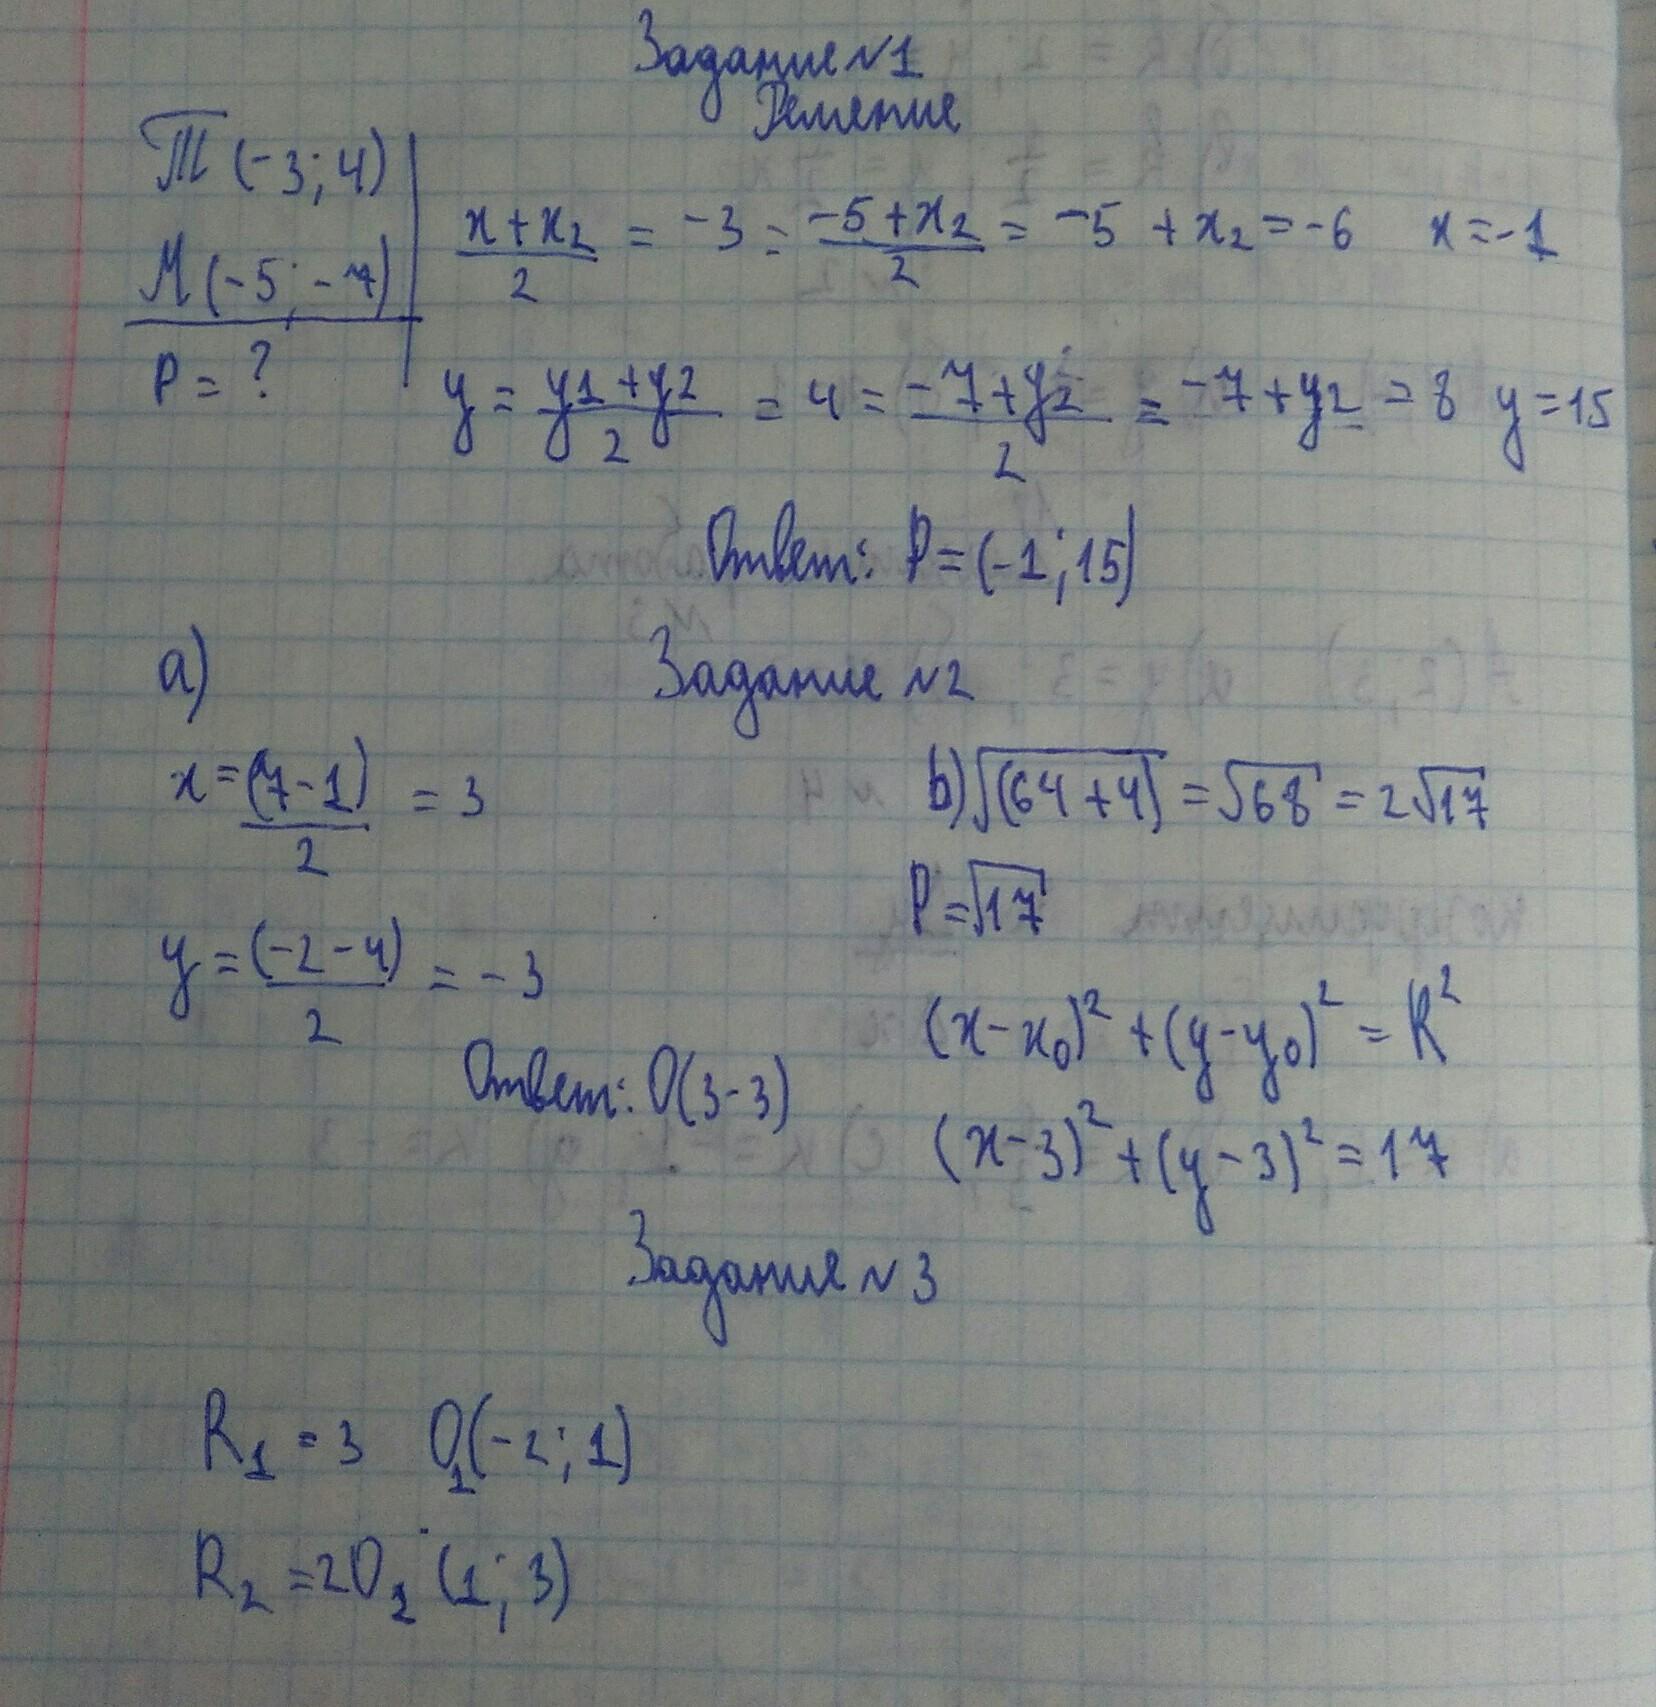 Задание №1
Решение
T (-3; 4)
M (-5; -7)
P = ?
x+x2/2 = -3 = -5+x2/2 = -5 + x2 = -6 x = -1
y = y1+y2/2 = 4 = -7+y2/2 = -7+y2 = 8 y = 15
Ответ: P = (-1; 15)
Задание №2
a)
x = (7-1)/2 = 3
y = (-2-4)/2 = -3
Ответ: O(3-3)
b) √(64+4) = √68 = 2√17
P = √17
(x-x0)² + (y-y0)² = R²
(x-3)² + (y-3)² = 17
Задание №3
R1 = 3 O1(-2; 1)
R2 = 2 O2 (1; 3)